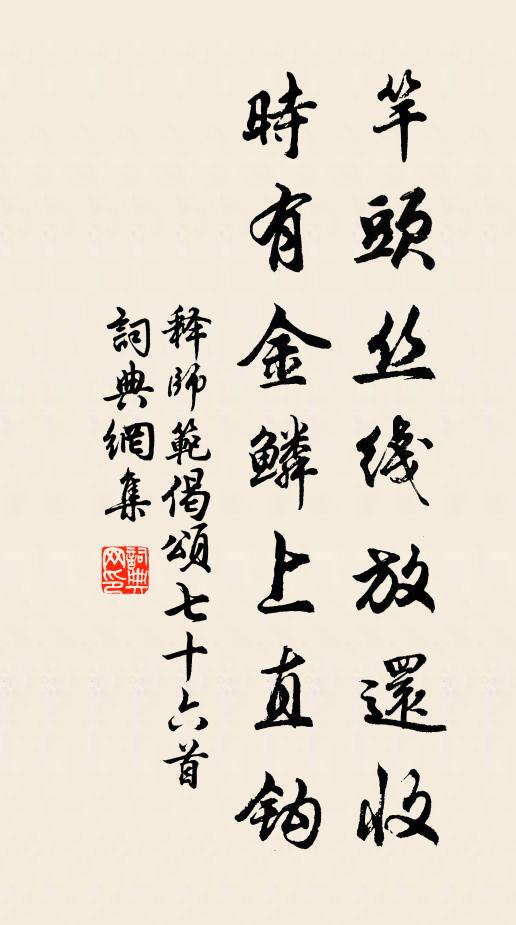 竿頭丝线放還收
時有金鱗上直鈎
释師範偈頌七十六首
詞典網集
詞典网印